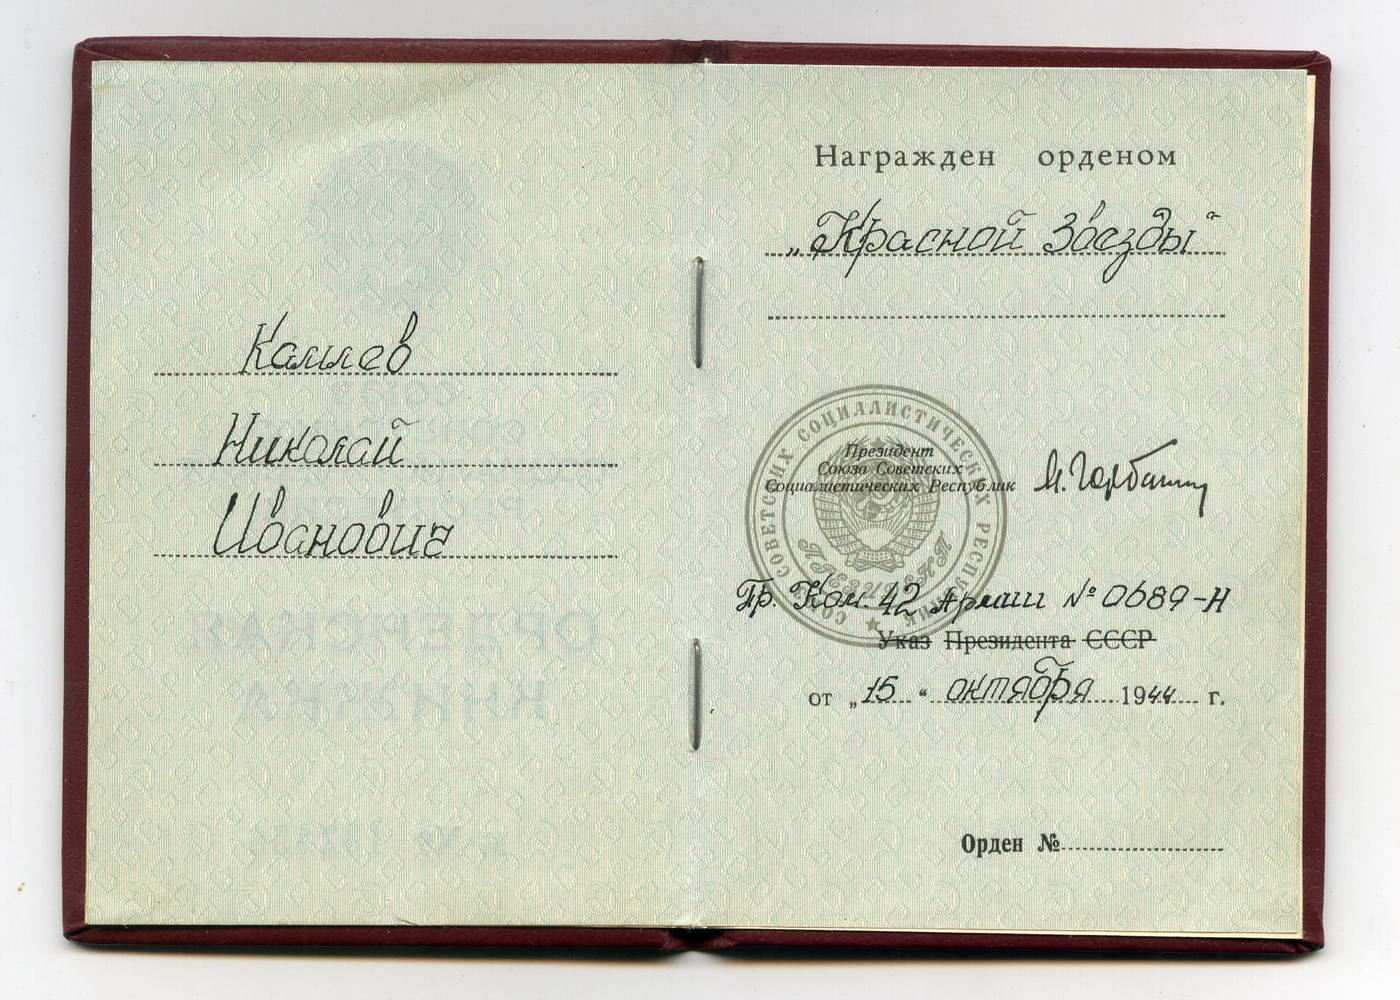 Николай
Иванович
Награжден орденом
„Красной Звезды“
СОЮЗ СОВЕТСКИХ СОЦИАЛИСТИЧЕСКИХ РЕСПУБЛИК
ПРЕЗИДЕНТ
Президент
Союза Советских
Социалистических Республик
М. Горбачев
Пр. Ком. 42 Армии № 0689-Н
Указ Президента СССР
от „15“ октября 1944 г.
Орден №